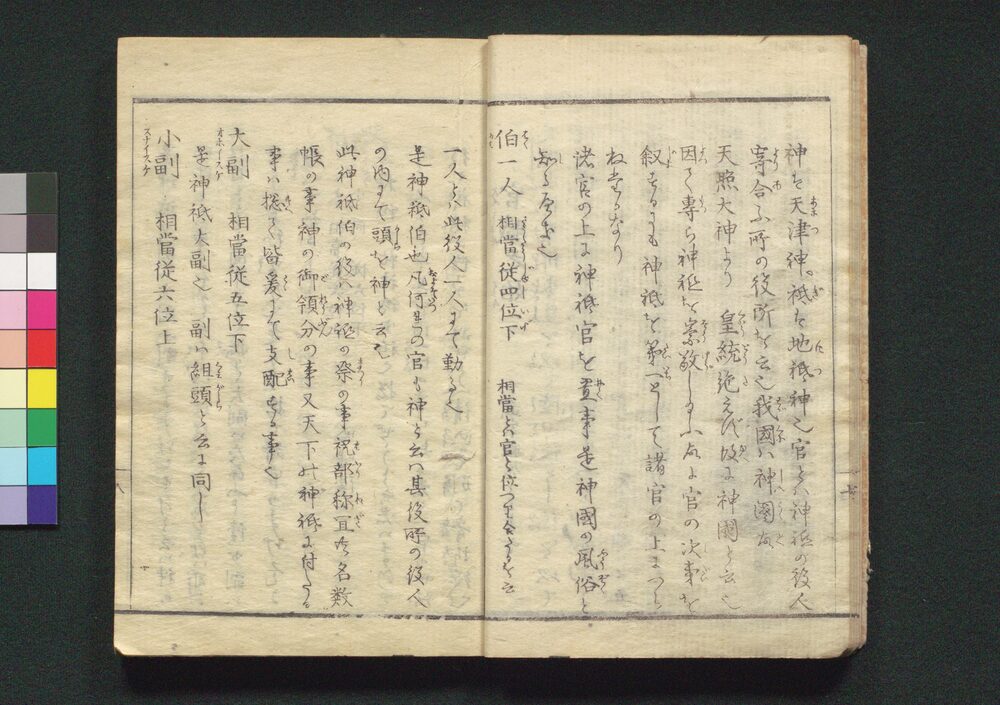 神は天津神。祇は地祇神也官とは神祇の役人
寄合ふ所の役所を云也我國は神國故
天照大神より 皇統絶えず故に神國と云也
因て専ら神祇を崇敬し給ふ故に官の次第を
叙するにも神祇を第一として諸官の上につら
ねらるなり
諸官の上に神祇官を置事是神國の風俗と
知るべき也
伯一人 相當従四位下 相當とは官と位つり合たるを云
一人とは此役人一人にて勤る也
是神祇伯也凡何の官も神と云は其役所の役人
の内にて頭を神と云也
此神祇伯の役は神祇の祭の事祝部祢宜等名数
帳の事神の御領分の事又天下の神祇に付たる
事は惣て皆爰にて支配する事也
大副 相當従五位下
是神祇大副也 副は組頭と云に同し
小副 相當従六位上